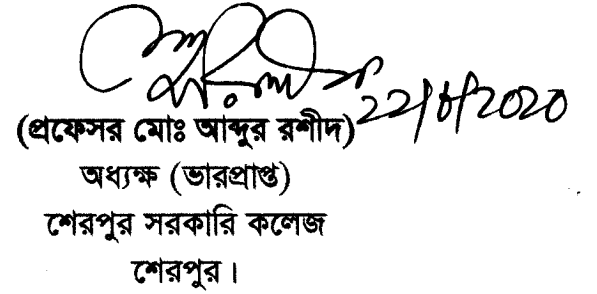 22/6/2020
(প্রফেসর মোঃ আব্দুর রশীদ)
অধ্যক্ষ (ভারপ্রাপ্ত)
শেরপুর সরকারি কলেজ
শেরপুর।